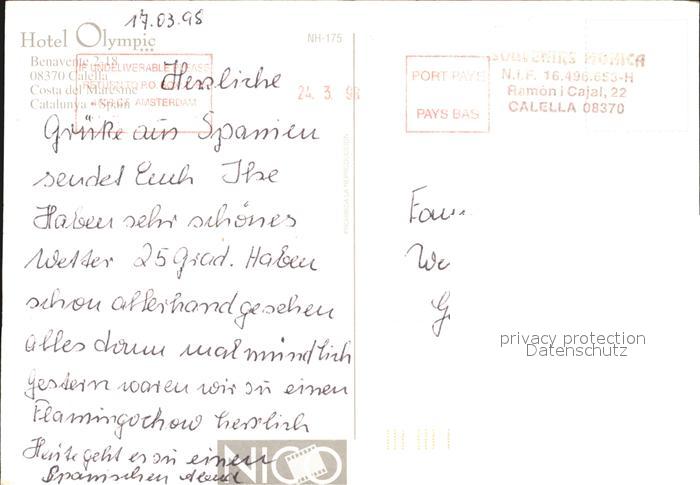 17.03.98
Hotel Olympic
Benavente 2-18
08370 Calella
Costa del Maresme
Catalunya - Spain
NH-175
24. 3. 98
AMSTERDAM
PORT PAYÉ
PAYS BAS
SOUVENIRS MONICA
N.I.F. 16.496.653-H
Ramón i Cajal, 22
CALELLA 08370
Herzliche
Grüße aus Spanien
sendet Euch Ilse
Haben sehr schönes
Wetter 25 Grad. Haben
schon allerhand gesehen
alles dann mal mündlich
Gestern waren wir zu einen
Flamingoschow herrlich
Heute geht es zu einen
Spanischen Abend
Fam.
We
G
privacy protection
Datenschutz
PROHIBIDA LA REPRODUCCION
NICO